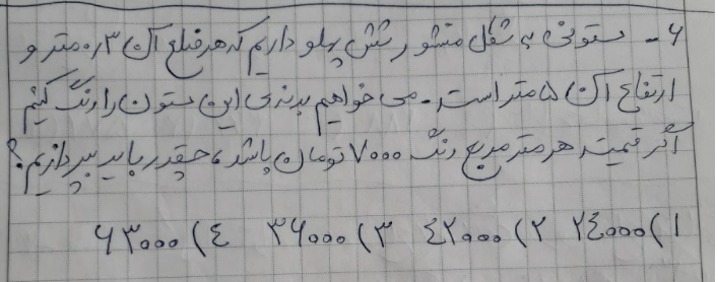 ۶- ستونی به شکل منشور شش پهلو داریم که هر ضلع آن ۰٫۳ متر و
ارتفاع آن ۵ متر است. می خواهیم بدنه ی این ستون را رنگ کنیم
اگر قیمت هر متر مربع رنگ ۷۰۰۰ تومان باشد، چقدر باید بپردازیم؟
۱) ۲۴۰۰۰ ۲) ۴۲۰۰۰ ۳) ۳۶۰۰۰ ۴) ۶۳۰۰۰